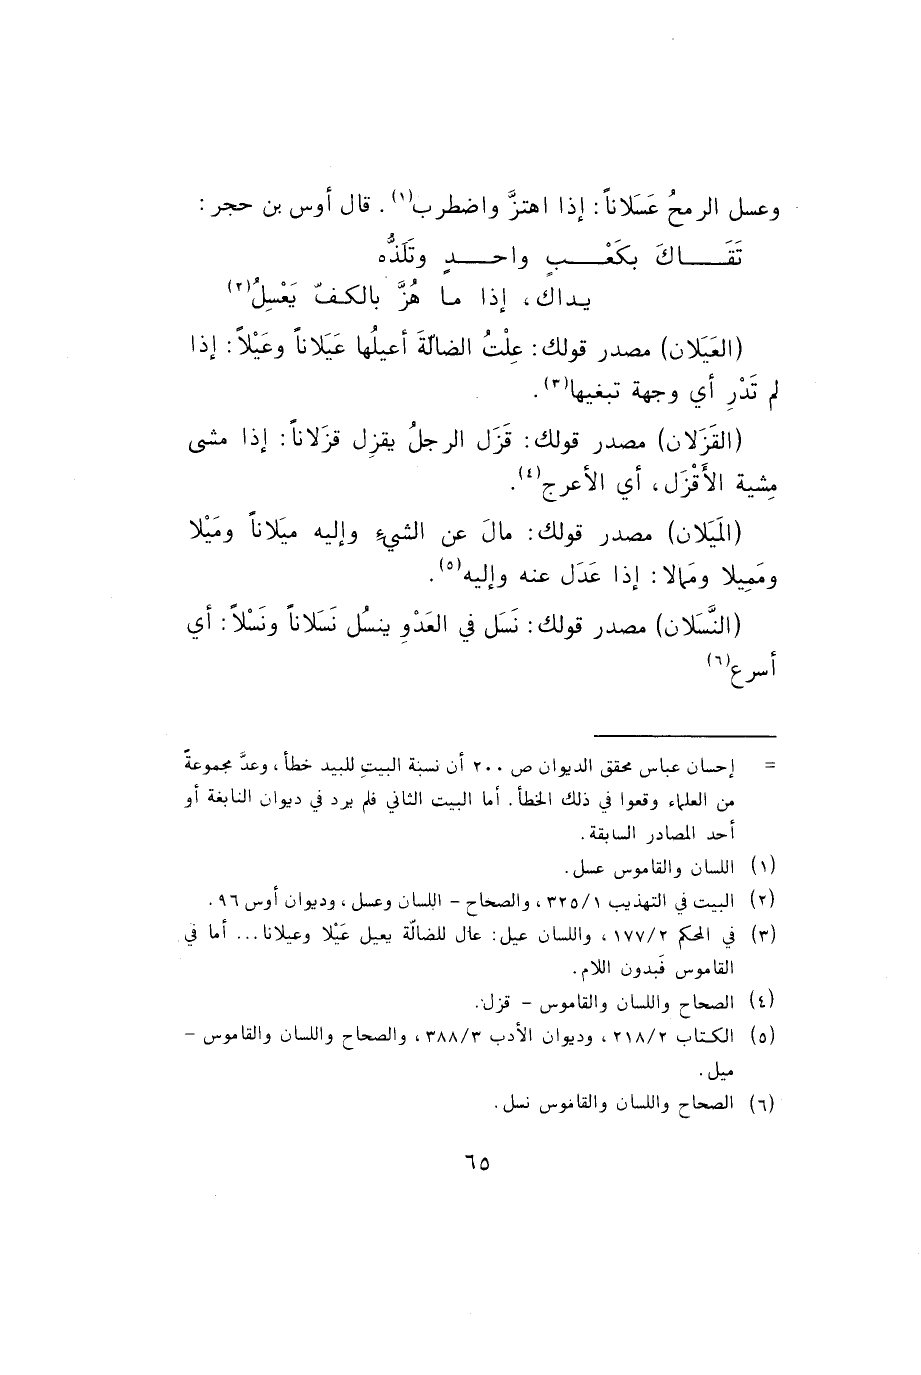 وعسل الرمحُ عَسَلاناً: إذا اهتزَّ واضطرب(١). قال أوس بن حجر:
تَقَـــاكَ بكَعْـــبٍ واحـــدٍ وتَلَذُّه
يداك، إذا ما هُزَّ بالكفّ يَعْسِلُ(٢)
(العَيَلان) مصدر قولك: عِلْتُ الضالّةَ أعيلُها عَيَلاناً وعَيْلاً: إذا
لم تَدْرِ أي وجهة تبغيها(٣).
(القَزَلان) مصدر قولك: قَزَل الرجلُ يقزِل قزَلاناً: إذا مشى
مِشية الأَقْزَل، أي الأعرج(٤).
(المَيَلان) مصدر قولك: مالَ عن الشيءِ وإليه ميَلاناً ومَيْلا
ومَمِيلا ومَمالا: إذا عَدَل عنه وإليه(٥).
(النَّسَلان) مصدر قولك: نَسَل في العَدْوِ ينسُل نَسَلاناً ونَسْلاً: أي
أسرع(٦)
= إحسان عباس محقق الديوان ص ٢٠٠ أن نسبة البيتِ للبيد خطأ، وعدَّ مجموعةً
من العلماء وقعوا في ذلك الخطأ. أما البيت الثاني فلم يرد في ديوان النابغة أو
أحد المصادر السابقة.
(١) اللسان والقاموس عسل.
(٢) البيت في التهذيب ٣٢٥/١، والصحاح - اللسان وعسل، وديوان أوس ٩٦.
(٣) في المحكم ١٧٧/٢، واللسان عيل: عال للضالّة يعيل عَيْلا وعيلانا... أما في
القاموس فَبدون اللام.
(٤) الصحاح واللسان والقاموس - قزل.
(٥) الكتاب ٢١٨/٢، وديوان الأدب ٣٨٨/٣، والصحاح واللسان والقاموس -
ميل.
(٦) الصحاح واللسان والقاموس نسل.
٦٥